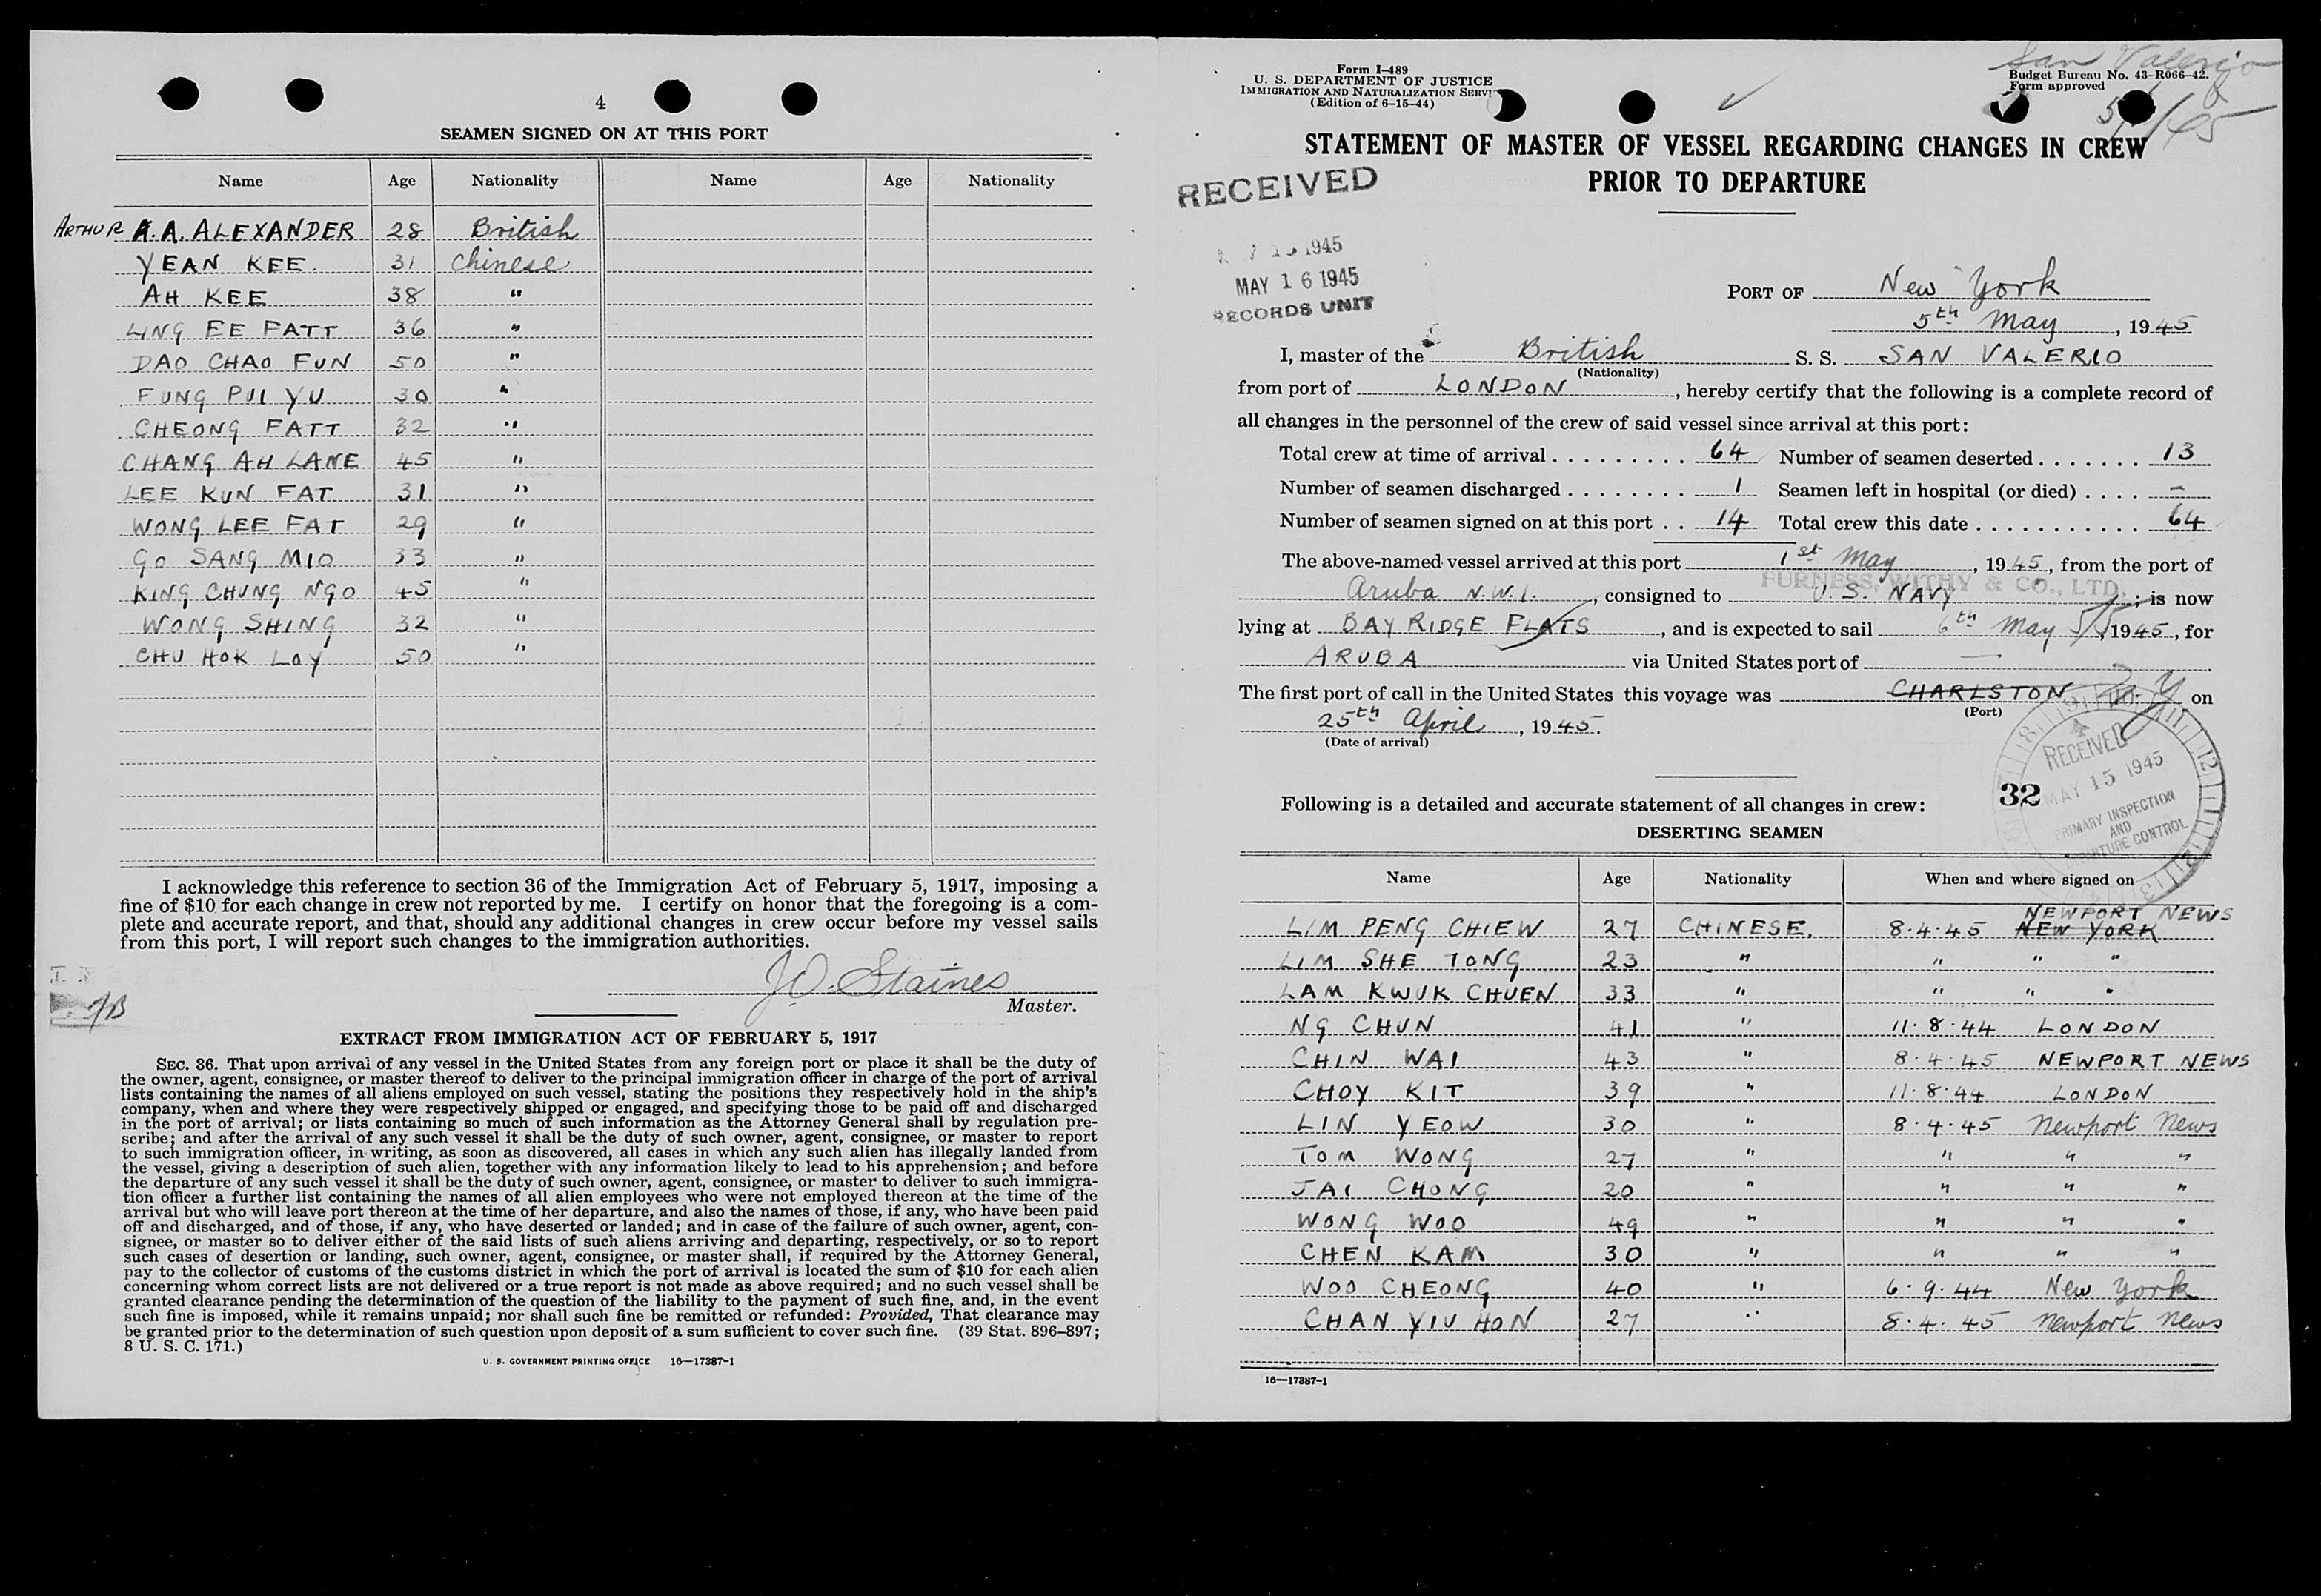 4
SEAMEN SIGNED ON AT THIS PORT
Name Age Nationality Name Age Nationality
ARTHUR A. A. ALEXANDER 28 British
YEAN KEE. 31 Chinese
AH KEE 38 "
LING EE FATT 36 "
DAO CHAO FUN 50 "
FUNG PUI YU 30 "
CHEONG FATT 32 "
CHANG AH LANE 45 "
LEE KUN FAT 31 "
WONG LEE FAT 29 "
GO SANG MIO 33 "
KING CHUNG NGO 45 "
WONG SHING 32 "
CHU HOK LOY 50 "
I acknowledge this reference to section 36 of the Immigration Act of February 5, 1917, imposing a
fine of $10 for each change in crew not reported by me. I certify on honor that the foregoing is a com-
plete and accurate report, and that, should any additional changes in crew occur before my vessel sails
from this port, I will report such changes to the immigration authorities.
J.O. Staines
Master.
EXTRACT FROM IMMIGRATION ACT OF FEBRUARY 5, 1917
SEC. 36. That upon arrival of any vessel in the United States from any foreign port or place it shall be the duty of
the owner, agent, consignee, or master thereof to deliver to the principal immigration officer in charge of the port of arrival
lists containing the names of all aliens employed on such vessel, stating the positions they respectively hold in the ship's
company, when and where they were respectively shipped or engaged, and specifying those to be paid off and discharged
in the port of arrival; or lists containing so much of such information as the Attorney General shall by regulation pre-
scribe; and after the arrival of any such vessel it shall be the duty of such owner, agent, consignee, or master to report
to such immigration officer, in writing, as soon as discovered, all cases in which any such alien has illegally landed from
the vessel, giving a description of such alien, together with any information likely to lead to his apprehension; and before
the departure of any such vessel it shall be the duty of such owner, agent, consignee, or master to deliver to such immigra-
tion officer a further list containing the names of all alien employees who were not employed thereon at the time of the
arrival but who will leave port thereon at the time of her departure, and also the names of those, if any, who have been paid
off and discharged, and of those, if any, who have deserted or landed; and in case of the failure of such owner, agent, con-
signee, or master so to deliver either of the said lists of such aliens arriving and departing, respectively, or so to report
such cases of desertion or landing, such owner, agent, consignee, or master shall, if required by the Attorney General,
pay to the collector of customs of the customs district in which the port of arrival is located the sum of $10 for each alien
concerning whom correct lists are not delivered or a true report is not made as above required; and no such vessel shall be
granted clearance pending the determination of the question of the liability to the payment of such fine, and, in the event
such fine is imposed, while it remains unpaid; nor shall such fine be remitted or refunded: Provided, That clearance may
be granted prior to the determination of such question upon deposit of a sum sufficient to cover such fine. (39 Stat. 896–897;
8 U. S. C. 171.)
U. S. GOVERNMENT PRINTING OFFICE 16—17387-1
San Valerio
Form I–489
U. S. DEPARTMENT OF JUSTICE
IMMIGRATION AND NATURALIZATION SERVI
(Edition of 6–15–44)
Budget Bureau No. 43–R066–42.
Form approved
STATEMENT OF MASTER OF VESSEL REGARDING CHANGES IN CREW
PRIOR TO DEPARTURE
RECEIVED
1945
MAY 16 1945
RECORDS UNIT
PORT OF New York
5th May, 1945
I, master of the British S. S. SAN VALERIO
(Nationality)
from port of LONDON, hereby certify that the following is a complete record of
all changes in the personnel of the crew of said vessel since arrival at this port:
Total crew at time of arrival 64 Number of seamen deserted 13
Number of seamen discharged 1 Seamen left in hospital (or died) –
Number of seamen signed on at this port 14 Total crew this date 64
The above-named vessel arrived at this port 1st May, 1945, from the port of
FURNESS, WITHY & CO., LTD.
Aruba N.W.I., consigned to U.S. NAVY; is now
lying at BAY RIDGE FLATS, and is expected to sail 6th May, 1945, for
ARUBA via United States port of —
The first port of call in the United States this voyage was CHARLSTON N.Y. on
(Port)
25th April, 1945.
(Date of arrival)
RECEIVED
MAY 15 1945
PRIMARY INSPECTION
AND
DEPARTURE CONTROL
32
Following is a detailed and accurate statement of all changes in crew:
DESERTING SEAMEN
Name Age Nationality When and where signed on
NEWPORT NEWS
LIM PENG CHIEW 27 CHINESE. 8.4.45 NEW YORK
LIM SHE TONG 23 " " " "
LAM KWUK CHUEN 33 " " " "
NG CHUN 41 " 11.8.44 LONDON
CHIN WAI 43 " 8.4.45 NEWPORT NEWS
CHOY KIT 39 " 11.8.44 LONDON
LIN YEOW 30 " 8.4.45 Newport News
TOM WONG 27 " " " "
JAI CHONG 20 " " " "
WONG WOO 49 " " " "
CHEN KAM 30 " " " "
WOO CHEONG 40 " 6.9.44 New York
CHAN YIU HON 27 " 8.4.45 Newport News
16—17387-1